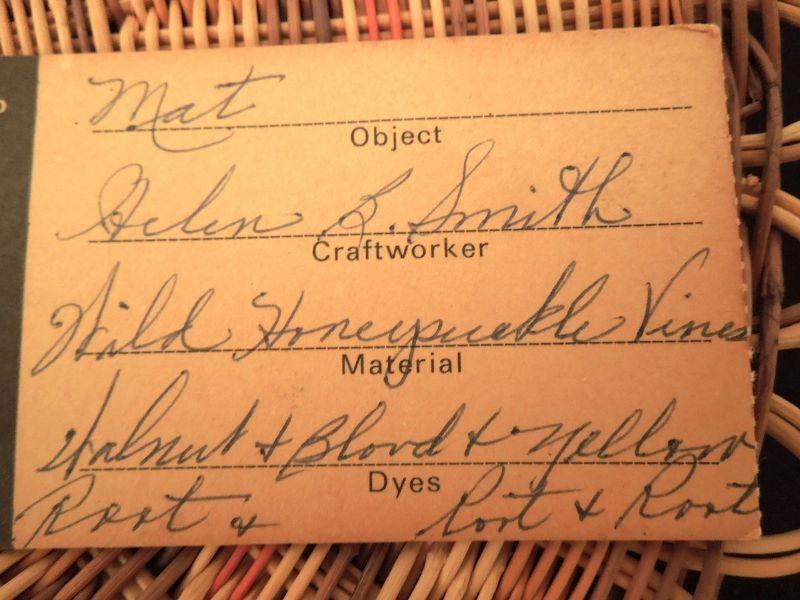 Mat
Object
Helen B. Smith
Craftworker
Wild Honeysuckle Vines
Material
Walnut & Blood & Yellow
Dyes
Root & Root & Root